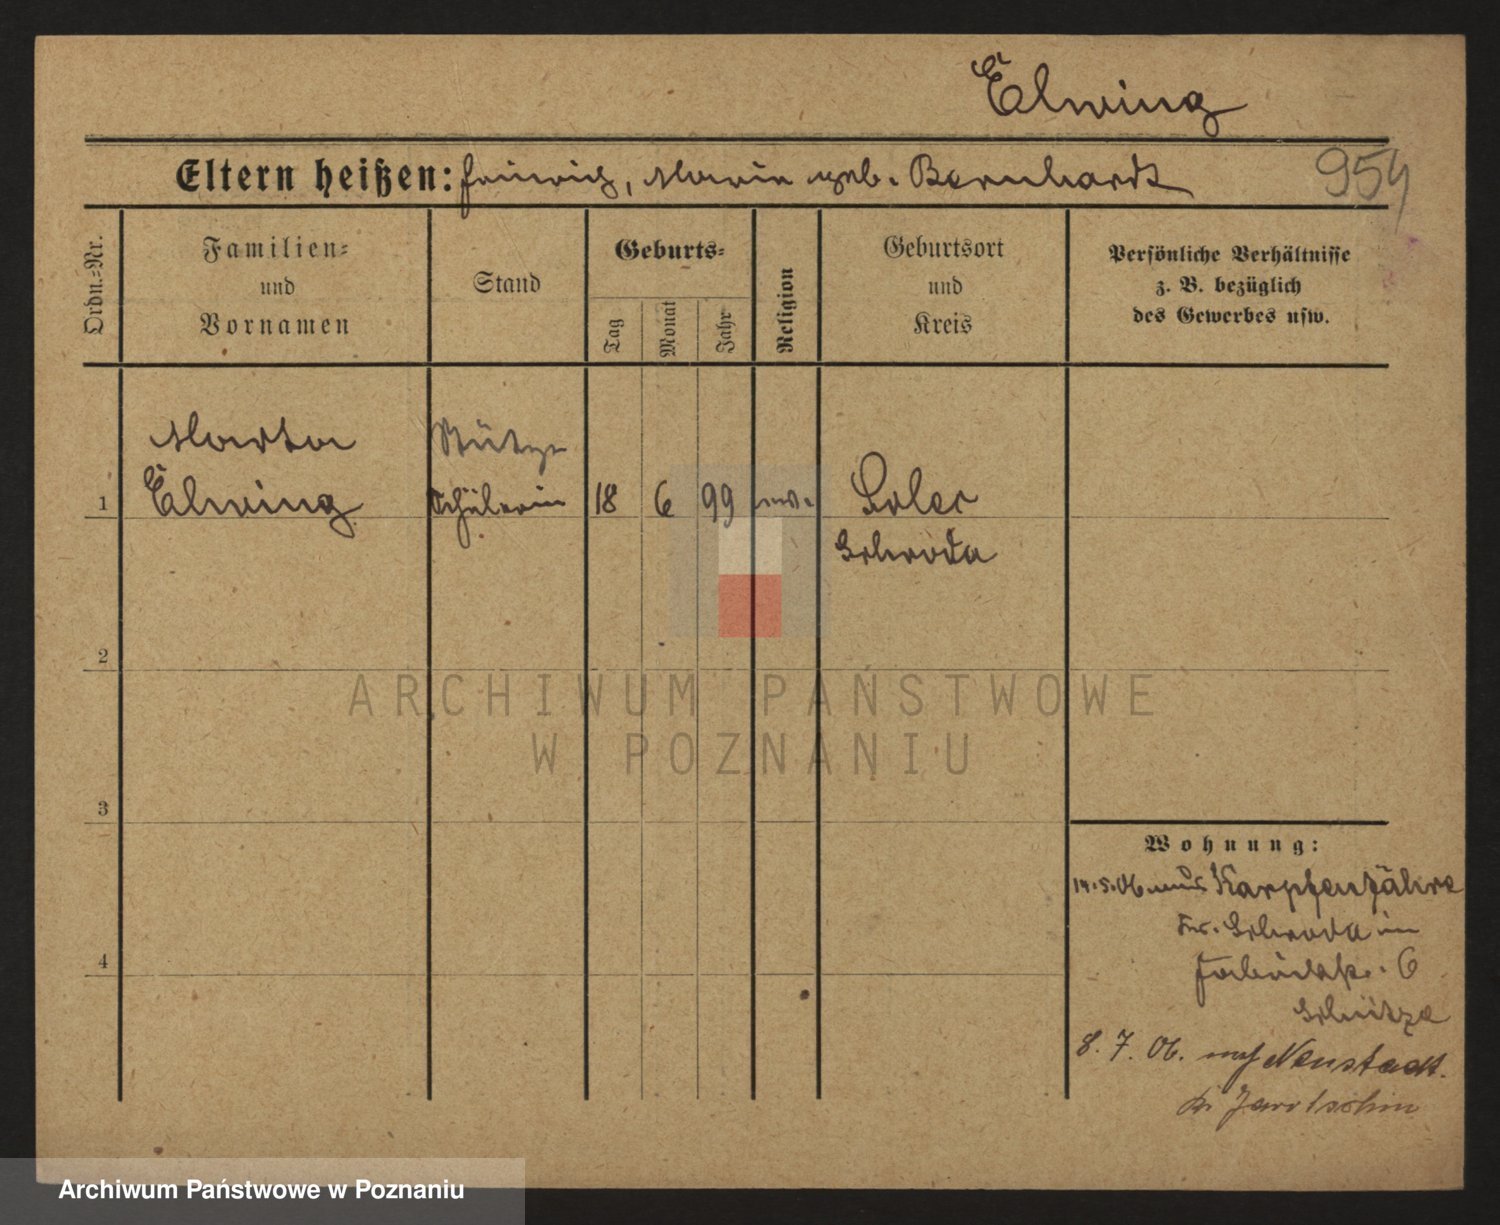 Elwing
Eltern heißen: Heinrich, Maria geb. Bernhardt
954
Ordn.-Nr.
Familien-
und
Vornamen
Stand
Geburts-
Tag
Monat
Jahr
Religion
Geburtsort
und
Kreis
Persönliche Verhältnisse
z. B. bezüglich
des Gewerbes usw.
Marta
Stütze
1
Elwing
Schülerin
18
6
99
Solec
Schroda
2
3
4
Wohnung:
14.5.06 aus
Kr. Schroda in
6
Schütze
8. 7. 06. nach Neustadt.
Kr. Jarotschin
ARCHIWUM PAŃSTWOWE
W POZNANIU
Archiwum Państwowe w Poznaniu